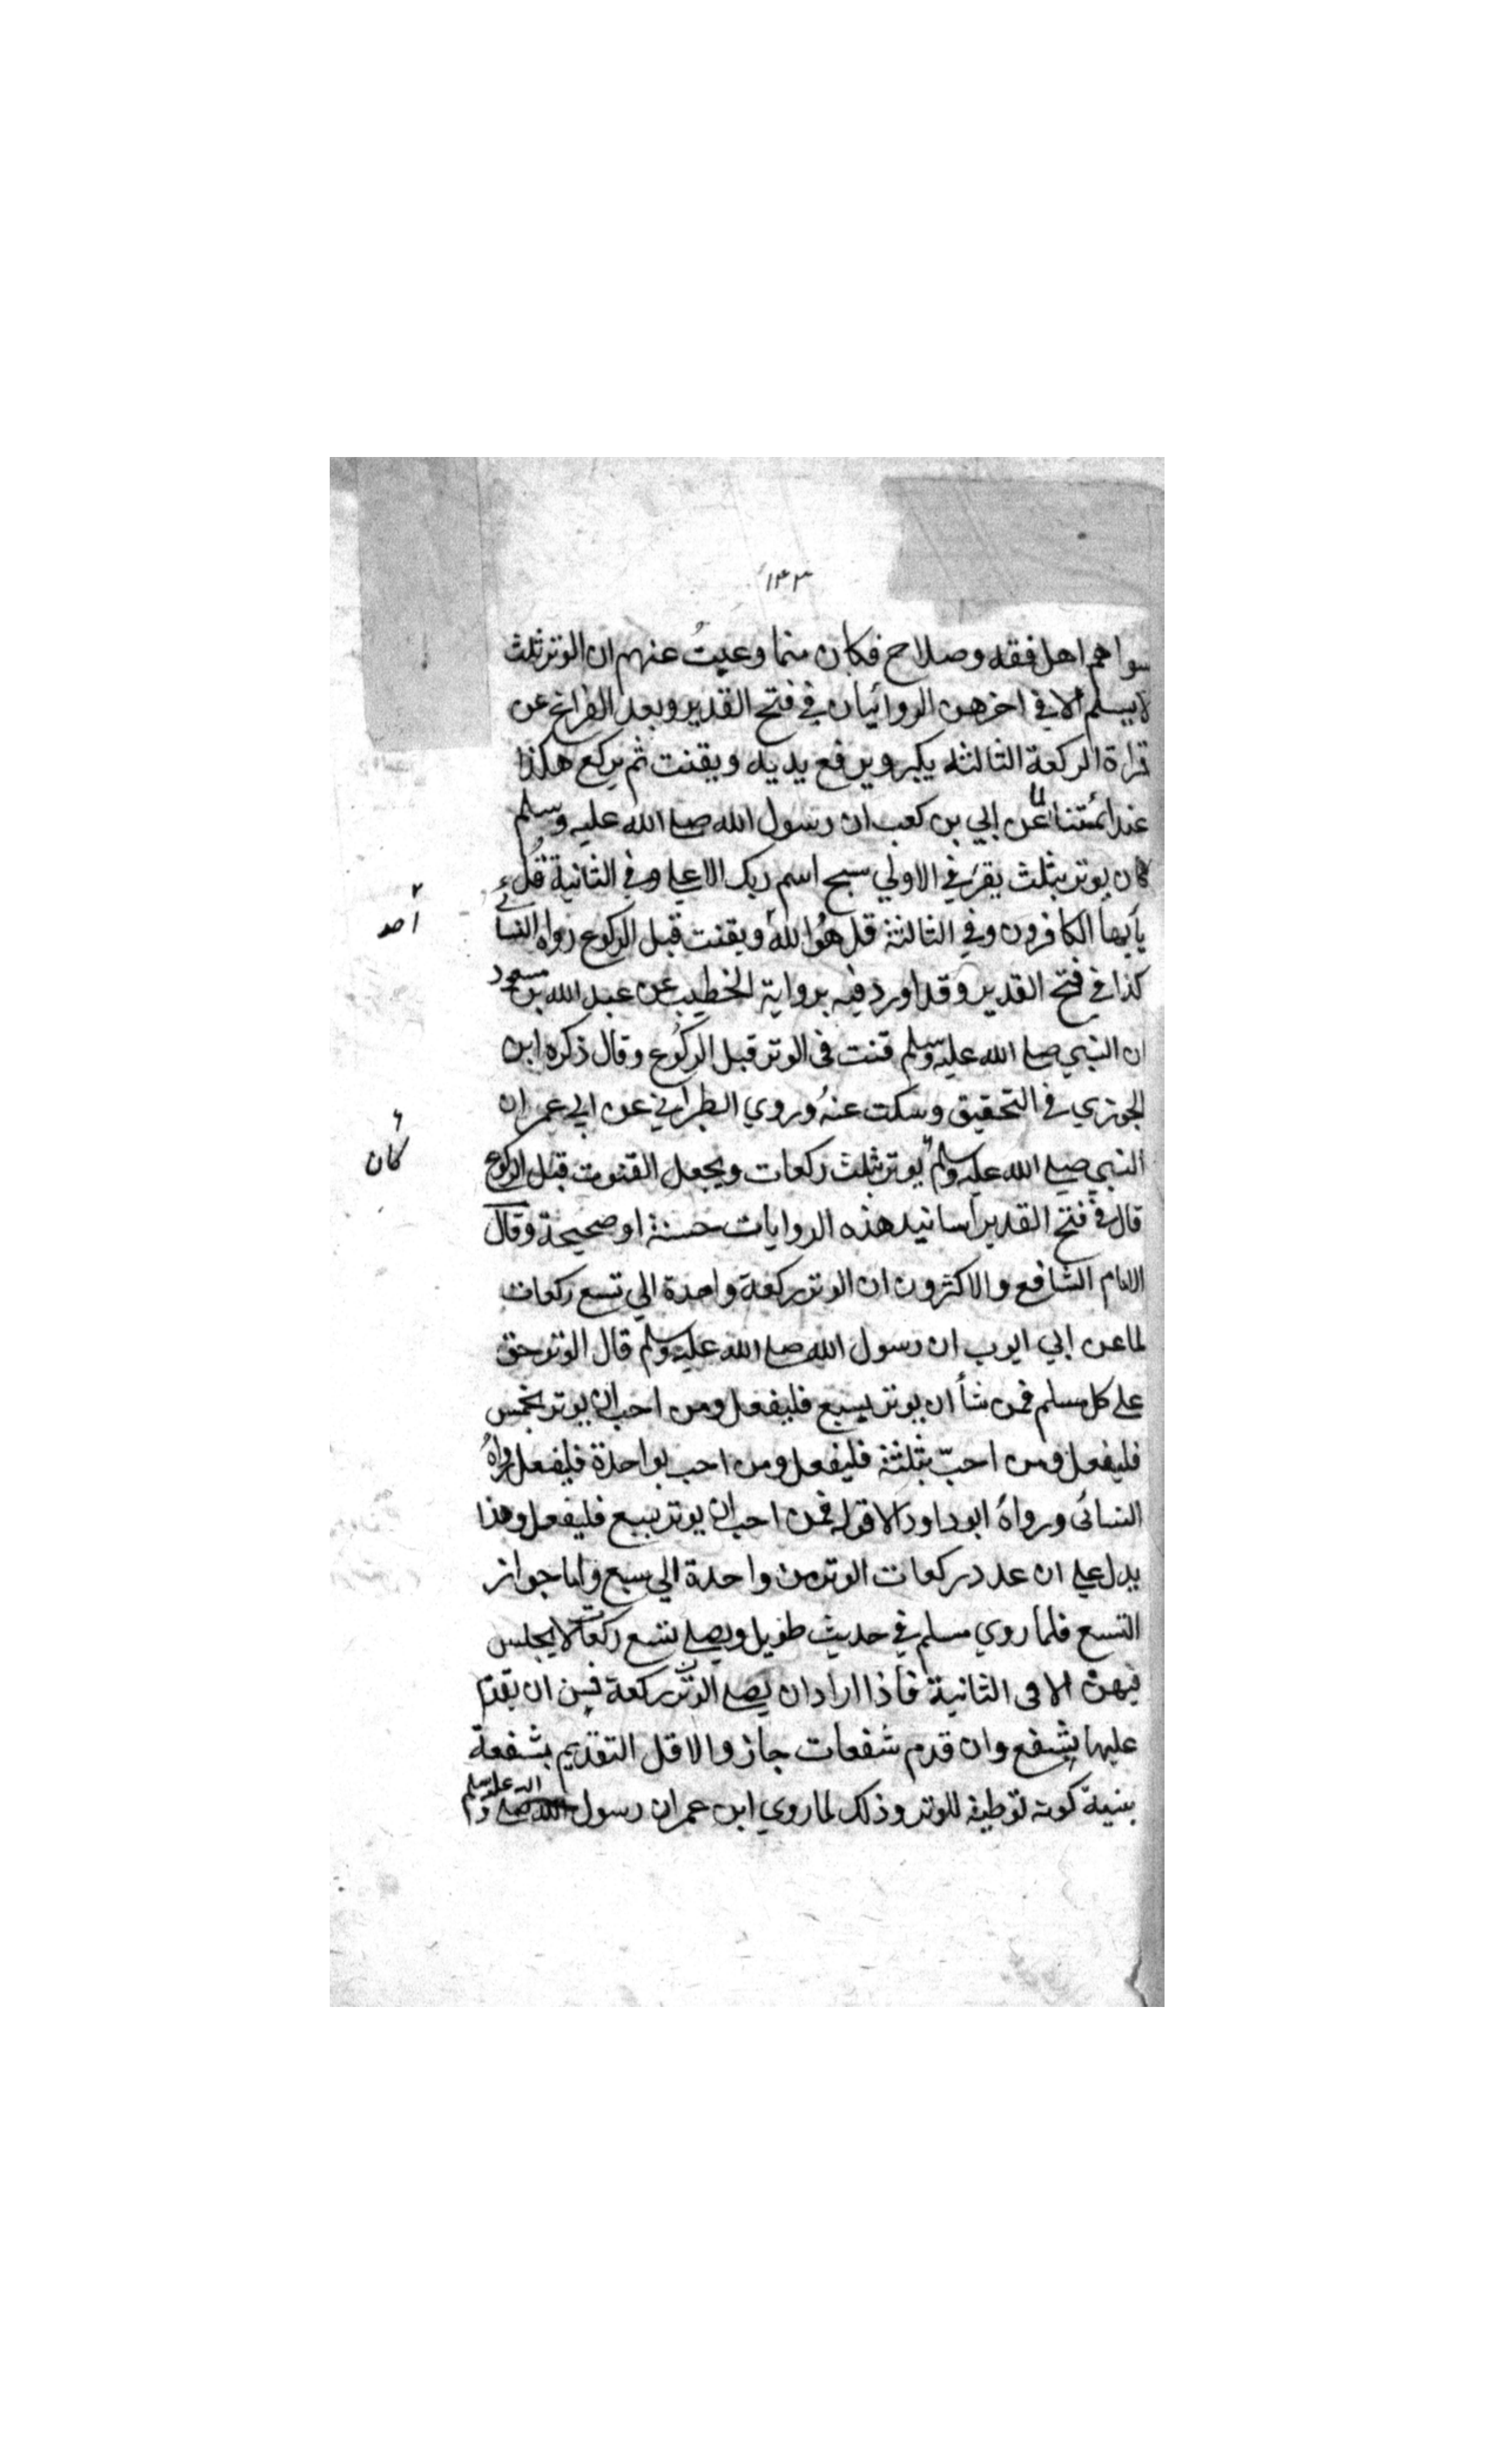 ١٤٣
سواهم اهل فقه وصلاح فكان مما وعيتُ عنهم ان الوتر ثلث
لا يسلم الا في اخرهن الروايتان في فتح القدير وبعد الفراغ عن
قراة الركعة الثالثه يكبر ويرفع يديه ويقنت ثم يركع هكذا
عند ائمتنا لما عن ابي بن كعب ان رسول الله صلى الله عليه وسلم
كان يوتر بثلث يقرء في الاولي سبح اسم ربك الاعلي وفي الثانية قل
يأيها الكافرون وفي الثالثة قل هُوَ الله ويقنت قبل الركوع رواه النسائي
احد
كذا في فتح القدير وقد اورد فيه برواية الخطيب عن عبد الله بن مسعود
ان النبي صلى الله عليه وسلم قنت في الوتر قبل الركوع وقال ذكره ابن
الجوزي في التحقيق وسكت عنهُ وروي الطبراني عن ابي عمر ان
النبي صلى الله عليه وسلم يوتر بثلث ركعات ويجعل القنوت قبل الركوع
كان
قال في فتح القدير اسانيد هذه الروايات حسنة او صحيحة وقال
الامام الشافع والاكثرون ان الوتر ركعة واحدة الي تسع ركعات
لما عن ابي ايوب ان رسول الله صلى الله عليه وسلم قال الوتر حق
على كل مسلم فمن شأ ان يوتر بسبع فليفعل ومن احب ان يوتر بخمس
فليفعل ومن احبّ بثلثة فليفعل ومن احب بواحدة فليفعل رواهُ
النسائى ورواهُ ابو داود الا قوله فمن احب ان يوتر بسبع فليفعل وهذا
يدل علي ان عدد ركعات الوتر من واحدة الي سبع واما جواز
التسع فلما روي مسلم في حديث طويل ويصلي تسع ركعات لا يجلس
فيهن الا في الثانية فاذا اراد ان يصلي الوتر ركعة فيسن ان يقدم
عليها بشفع وان قدم شفعات جاز والاقل التقديم بشفعة
بنية كونه توطية للوتر وذلك لما روي ابن عمر ان رسول الله صلى الله عليه وسلم